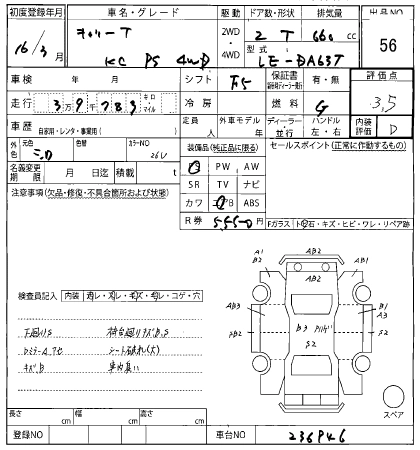 初度登録年月 車名・グレード 駆動 ドア数・形状 排気量 出品NO
16/3月 キャリーT 2WD・4WD 2 T 660 cc 56
KC PS 4WD 型式 LE-DA63T
車検 年 月 シフト F5 保証書 有・無 評価点
走行 3万9千783 キロ・マイル 冷房 燃料 G 3.5
車歴 自家用・レンタ・事業用( ) 定員 人 外車モデル 年 ディーラー・並行 ハンドル 左・右 内装評価 D
外色 元色 色替 カラーNO 26U 装備品(純正品に限る) セールスポイント(正常に作動するもの)
名義変更期限 月 日迄 積載 t PW AW
SR TV ナビ
注意事項(欠品・修復・不具合箇所および状態) カワ AB ABS
R券 5,550円 Fガラス トビ石・キズ・ヒビ・ワレ・リペア跡
A1 B2 AB2 AB1
AB2
検査員記入 内装 コゲ・穴
AB3 B1 A3
PB2 B3 S2 S2
下廻りS 荷台廻りキズB,S
シート破れ(大)
キズB 車内臭い
AB2
スペア
長さ cm 幅 cm 高さ cm
登録NO 車台NO 236946